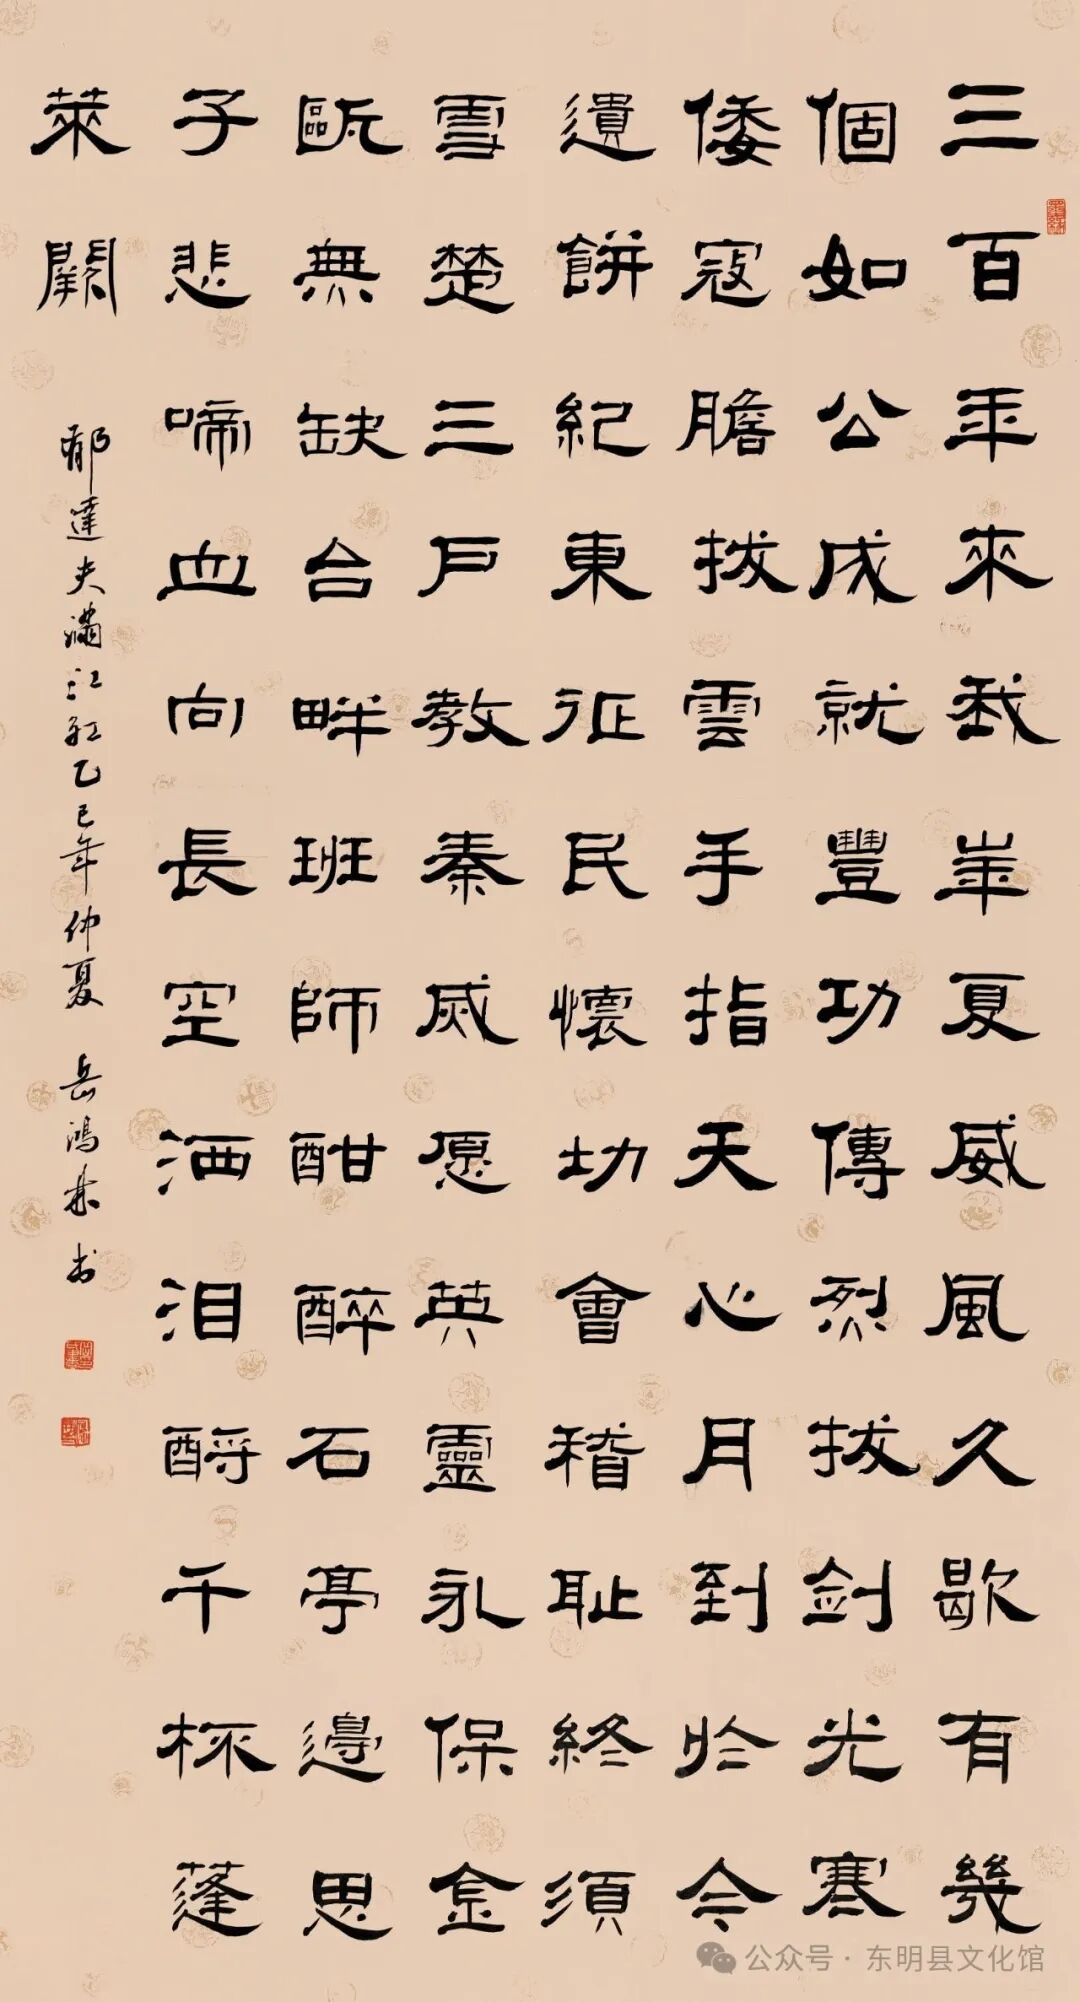 三百年來我崋夏威風久歇有幾
個如公成就豐功傳烈拔劍光寒
倭寇膽拔雲手指天心月到於今
遺餅紀東征民懷切會稽恥終須
雪楚三戶教秦烕愿英靈永保金
甌無缺台畔班師酣醉石亭邊思
子悲啼血向長空洒泪酹千杯蓬
萊闕
郁達夫滿江紅乙巳年仲夏 岳鴻书
公众号·东明县文化馆